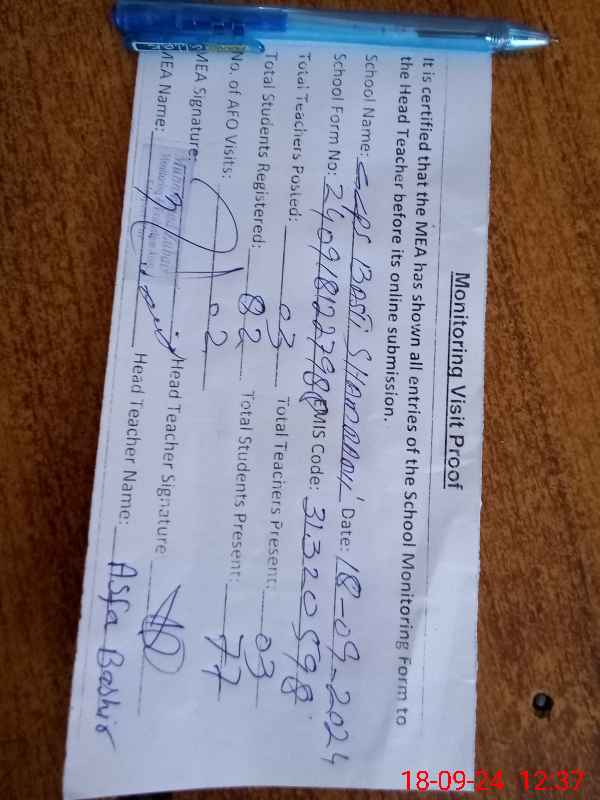 Monitoring Visit Proof
It is certified that the MEA has shown all entries of the School Monitoring Form to
the Head Teacher before its online submission.
School Name: GGPS Basti SHAMDANI Date: 18-09-2024
School Form No: EMIS Code: 31320598
Total Teachers Posted: 03 Total Teachers Present: 03
Total Students Registered: 82 Total Students Present: 77
No. of AFO Visits: 02
MEA Signature: Head Teacher Signature
MEA Name: Head Teacher Name: Asfa Bashir
18-09-24 12:37